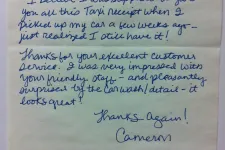 you all this Task receipt when I
picked up my car a few weeks ago -
just realized I still have it!
Thanks for your excellent customer
service. I was very impressed with
your friendly staff - and pleasantly
surprised by the car wash/detail - it
looks great!
Thanks Again!
Cameron